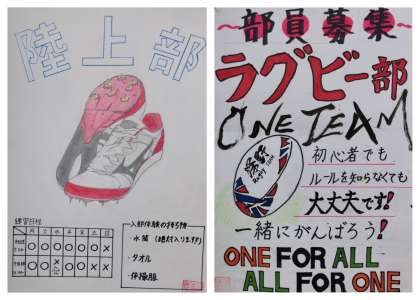 陸上部
練習日程
月 火 水 木 金 土 日
○ ○ ○ ○ ○ ○ ×
入部体験の持ち物
・水筒(絶対入ります)
・タオル
・体操服
～部員募集～
ラグビー部
ONE TEAM
初心者でも
ルールを知らなくても
大丈夫です!
一緒にがんばろう!
ONE FOR ALL
ALL FOR ONE